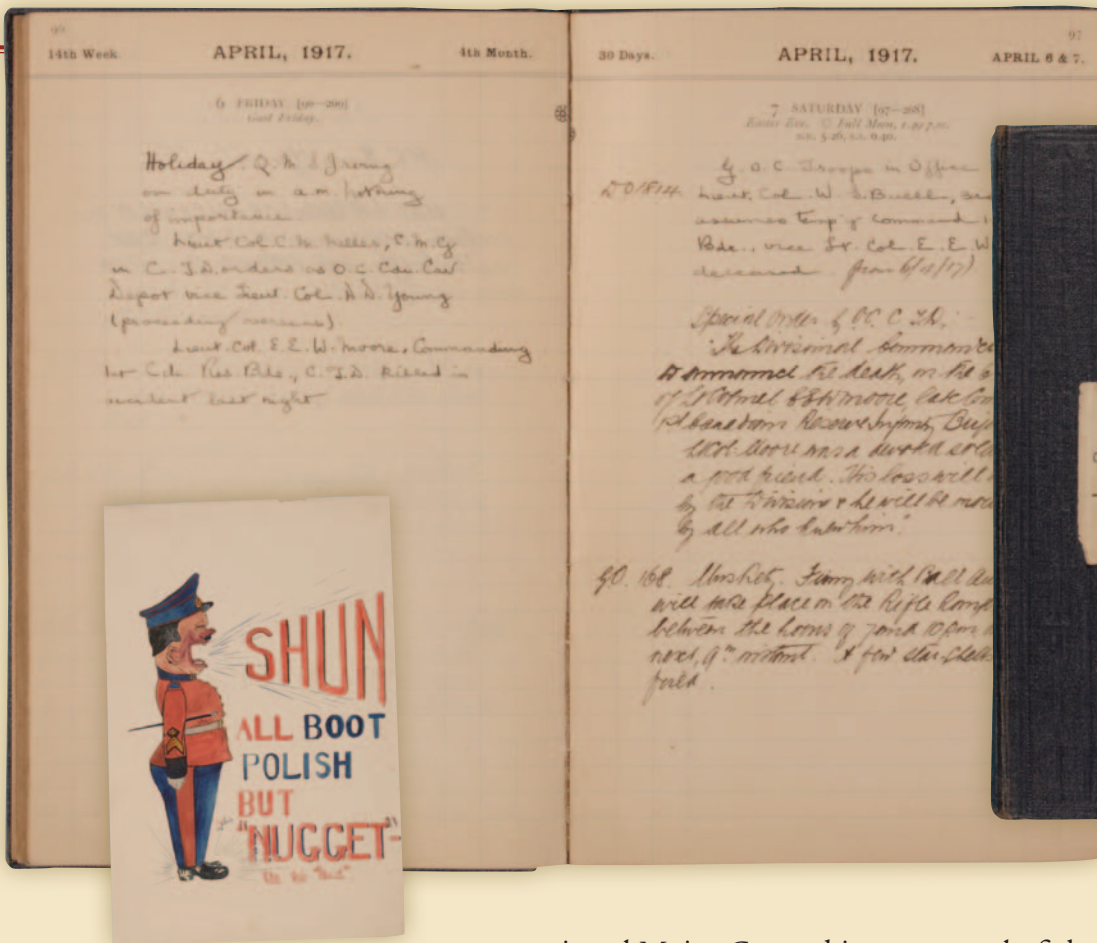 96
14th Week
APRIL, 1917.
4th Month.
6 FRIDAY [96—269]
Good Friday.
Holiday. Q. M. S Irving
on duty in a.m. Nothing
of importance
Lieut. Col. C. H. C. M. G
in C. T. D. orders as O. C. Cdn. Cav.
Depot vice Lieut. Col. A. D. Young
(proceeding overseas).
Lieut. Col. E. E. W. Moore, Commanding
1st Cdn. Res. Bde., C. T. D. killed in
accident last night.
97
30 Days.
APRIL, 1917.
APRIL 6 & 7.
7 SATURDAY [97—268]
Easter Eve. Full Moon, 1.49 p.m.
S.R. 5.26, S.S. 6.40.
G. O. C. Troops in Office
D O 1814
Lieut. Col. W. S. Buell,
assumes temp'y command
Bde., vice Lt. Col. E. E. W
deceased. from 6/4/17)
Special order by OC. C. T.D. :-
"The Divisional
announces the death, on the
of Lt Colonel E E W Moore, late
1st Canadian Reserve Infantry
Lt Col. Moore was a devoted
a good friend. His loss will
by the Division & he will be
by all who knew him".
GO. 168. Musketry. Firing with Ball
will take place on the Rifle
between the hours of 7 and 10 pm
next, 9th instant. A few star shells
fired.
SHUN
ALL BOOT
POLISH
BUT
"NUGGET"-